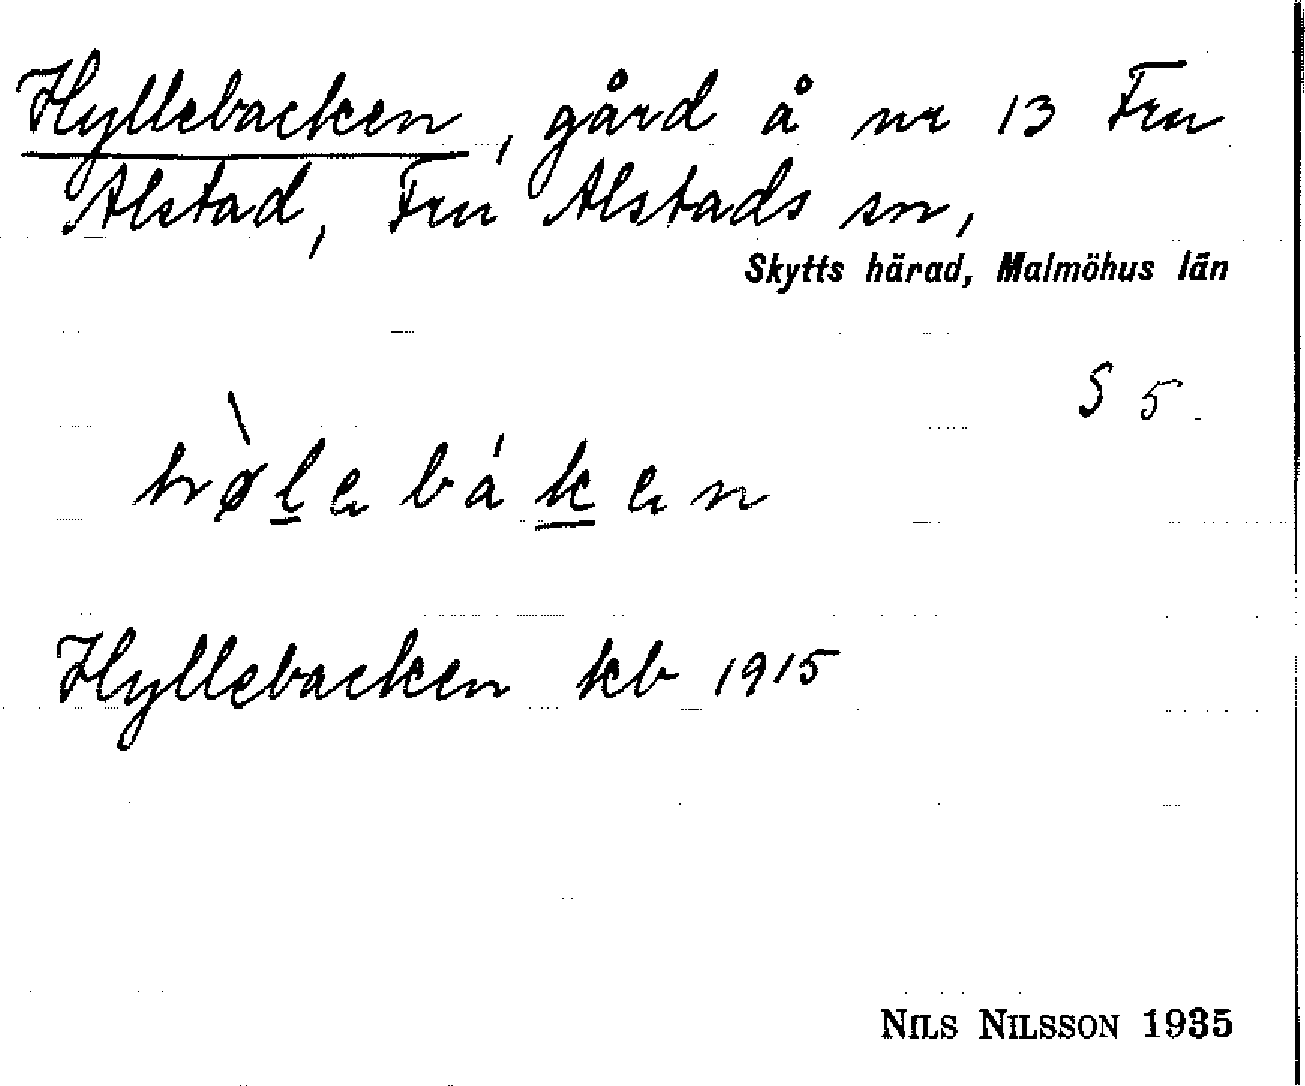 Hyllebacken, gård å nr 13 Fru
Alstad, Fru Alstads sn,
Skytts härad, Malmöhus län
S 5.
hø̀l̲ebák̲en
Hyllebacken kb 1915
NILS NILSSON 1935